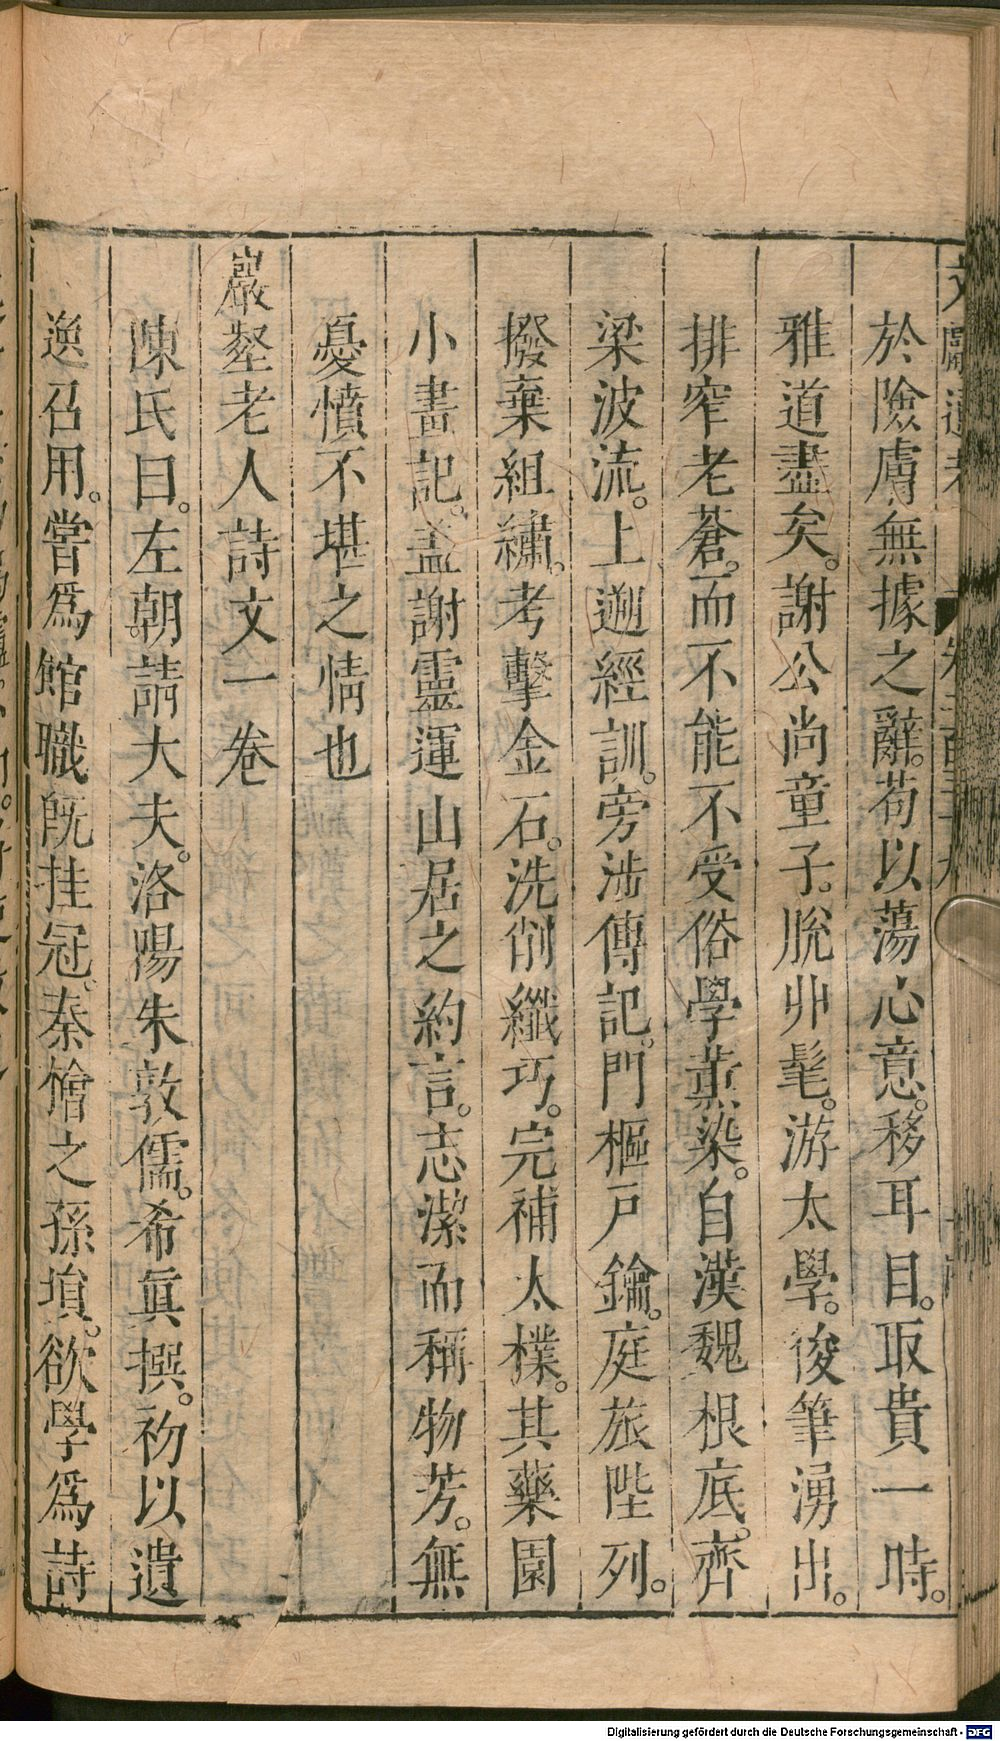 於險膚無據之辭。苟以蕩心意。移耳目。取貴一時。
雅道盡矣。謝公尚童子。脫丱髦。游太學。俊筆湧出。
排窄老蒼。而不能不受俗學薰染。自漢魏根底。齊
梁波流。上遡經訓。旁涉傳記。門樞戶鑰。庭旅陛列。
撥棄組繡。考擊金石。洗削纖巧。完補太樸。其藥園
小畫記。盖謝靈運山居之約言。志潔而稱物芳。無
憂憤不堪之情也
巖壑老人詩文一卷
陳氏曰。左朝請大夫。洛陽朱敦儒。希眞撰。初以遺
逸召用。嘗爲館職旣挂冠。秦檜之孫塤。欲學爲詩
Digitalisierung gefördert durch die Deutsche Forschungsgemeinschaft - DFG